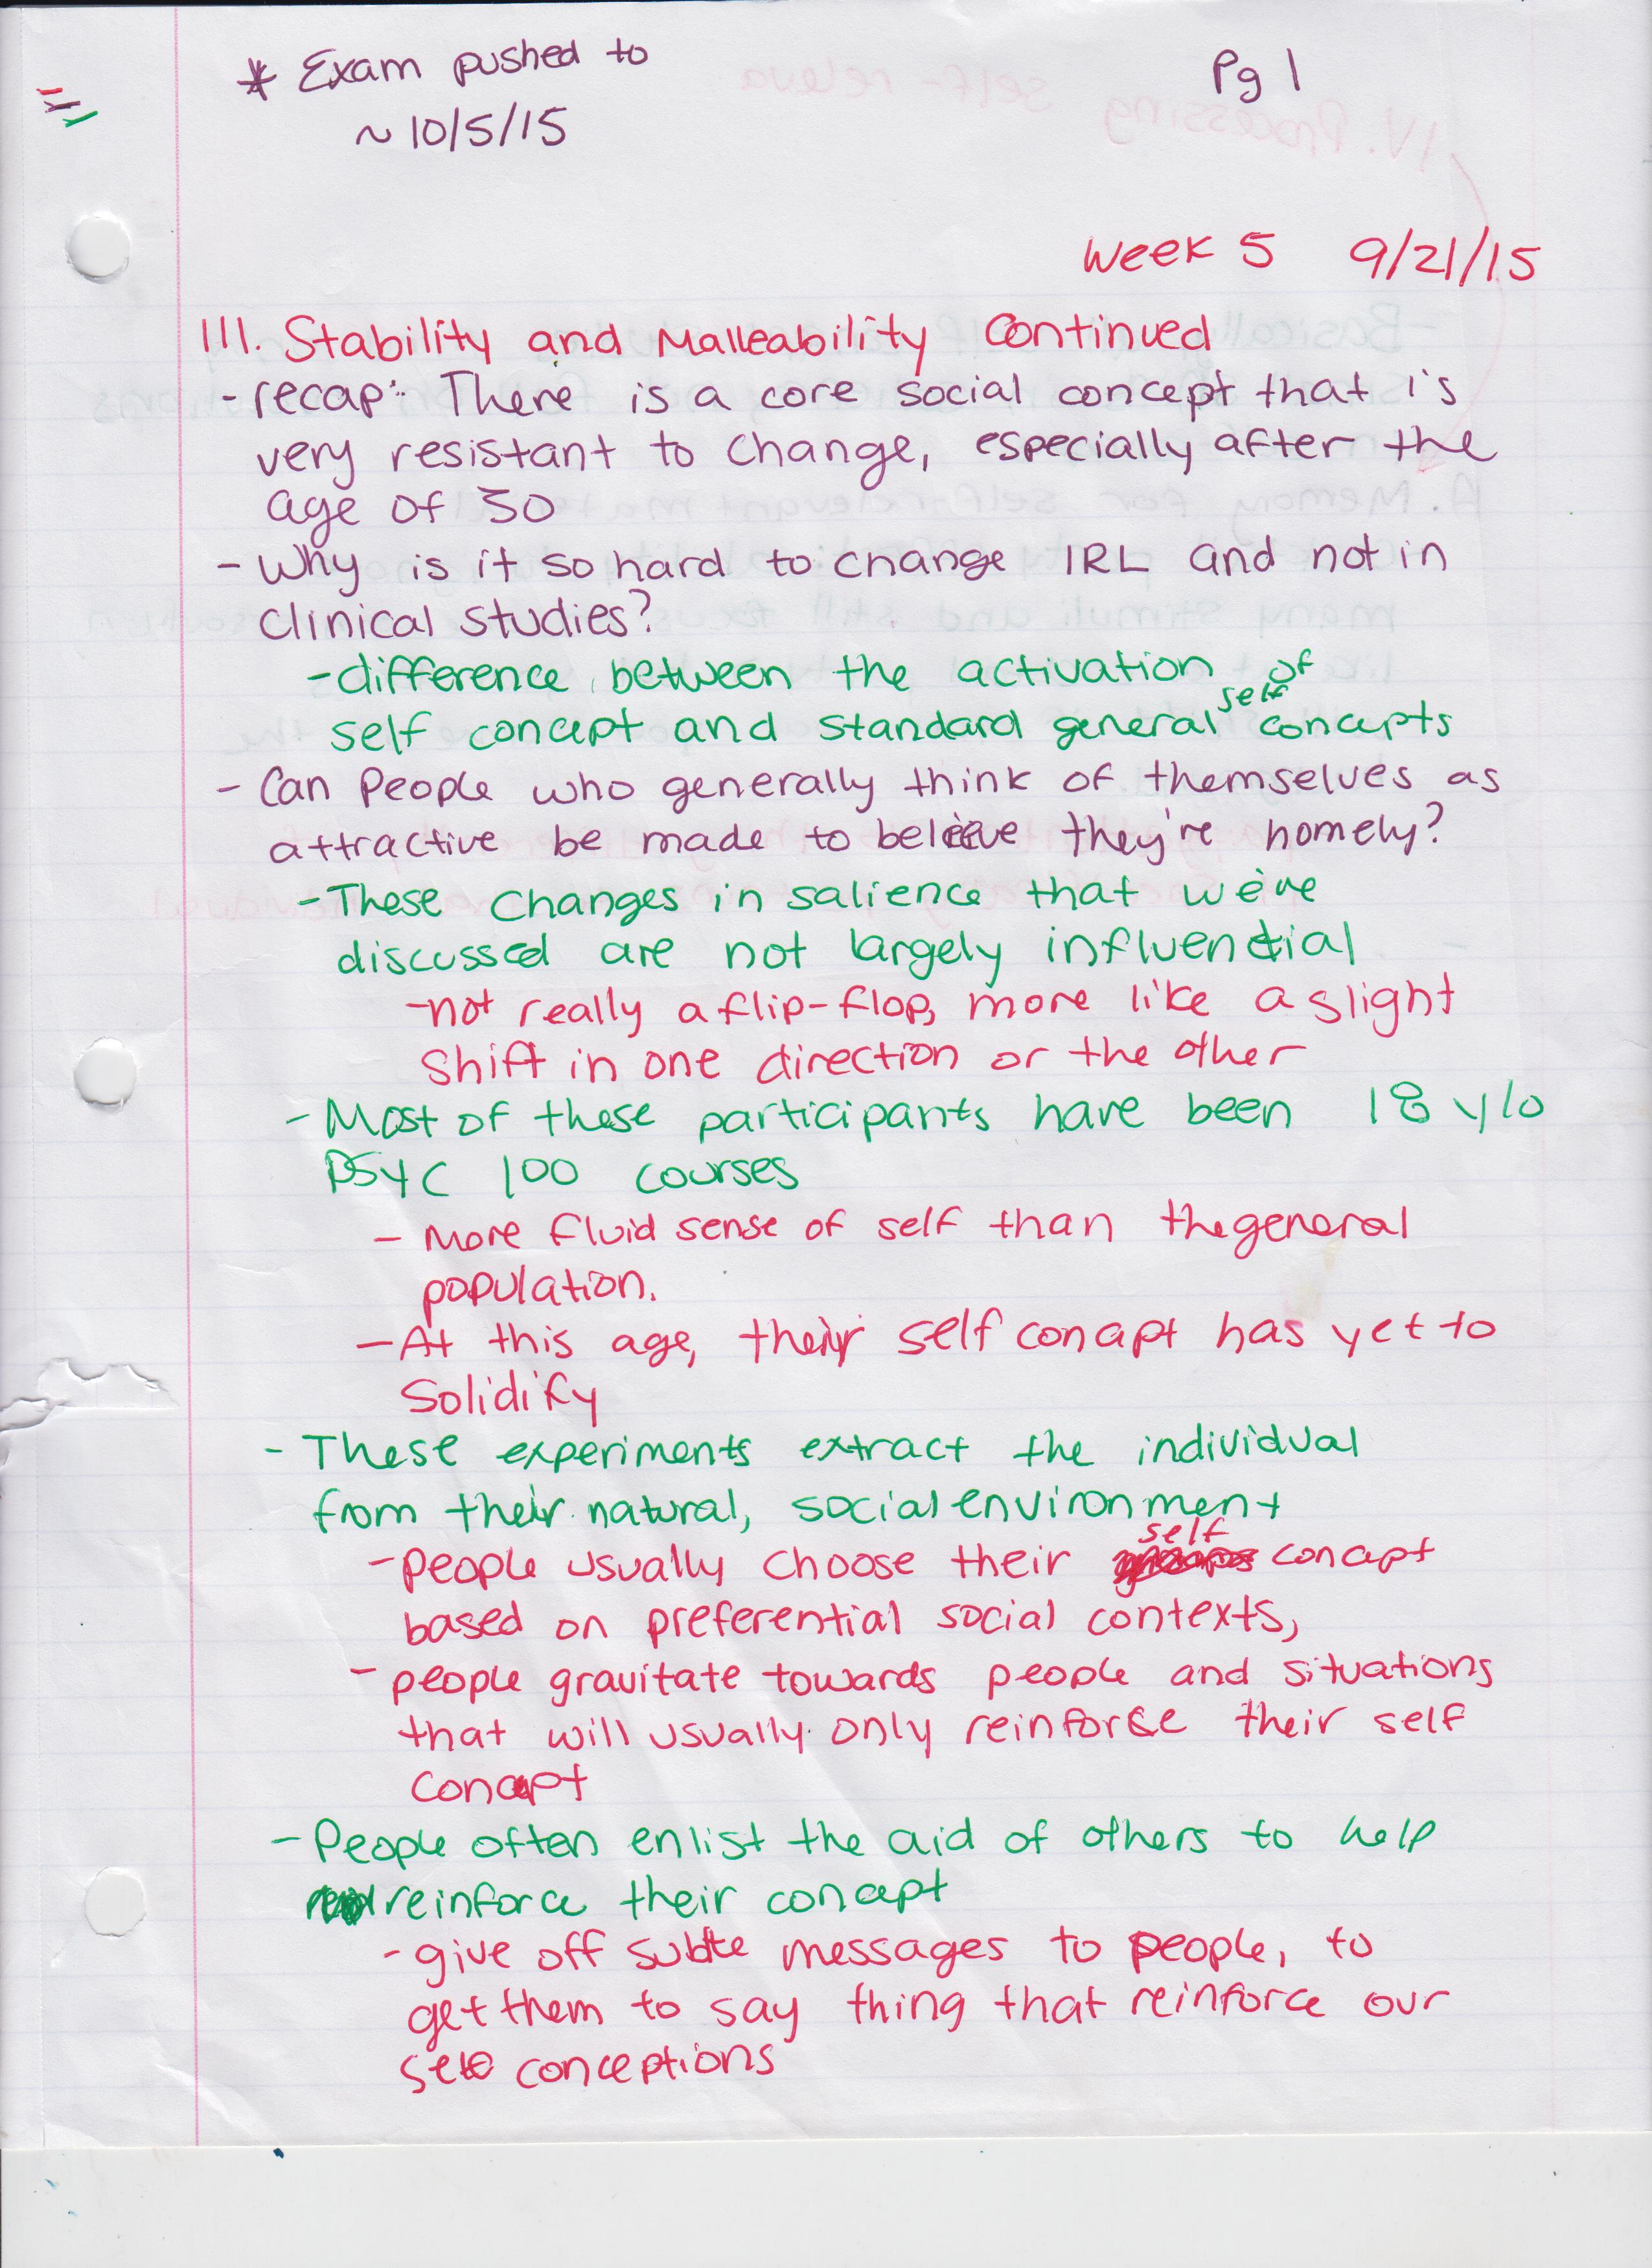 * Exam pushed to
~ 10/5/15
Pg 1
Week 5 9/21/15
III. Stability and Malleability Continued
- recap: There is a core social concept that is
very resistant to change, especially after the
age of 30
- Why is it so hard to change IRL and not in
clinical studies?
- difference between the activation of
self concept and standard general self concepts
- Can People who generally think of themselves as
attractive be made to believe they're homely?
- These changes in salience that we've
discussed are not largely influential
- not really a flip-flop, more like a slight
shift in one direction or the other
- Most of these participants have been 18 y/o
PSYC 100 courses
- More fluid sense of self than the general
population.
- At this age, their self concept has yet to
Solidify
- These experiments extract the individual
from their natural, social environment
- People usually choose their self concept
based on preferential social contexts,
- people gravitate towards people and situations
that will usually only reinforce their self
concept
- People often enlist the aid of others to help
reinforce their concept
- give off subtle messages to people, to
get them to say thing that reinforce our
self conceptions